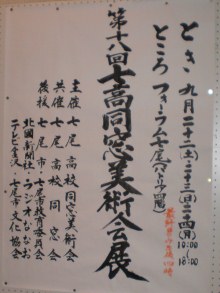 とき 九月二十二(土)・二十三(日)・二十四(月)
10:00〜18:00
ところ フォーラム七尾(パトリア四階)
第十八回 七高同窓美術会展
主催 七尾高校同窓美術会
共催 七尾高校同窓会
後援 七尾市・七尾市教育委員会
北國新聞社・ラジオななお
テレビ金沢・七尾市文化協会